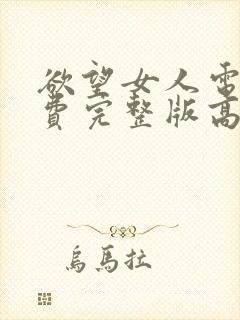 欲望女人電
費完整版高
烏馬拉